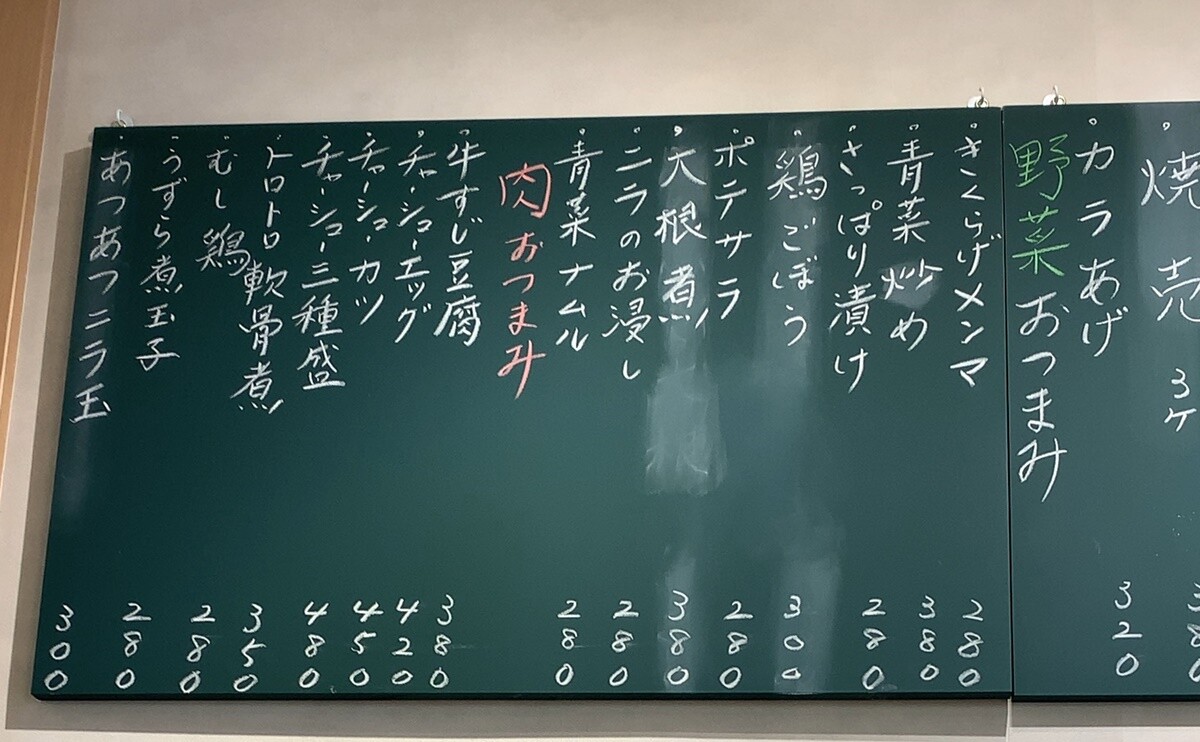 ・焼売 3ケ 380
・カラあげ 320
野菜おつまみ
・きくらげメンマ 280
・青菜炒め 380
・さっぱり漬け 280
・鶏ごぼう 300
・ポテサラ 280
・大根煮 380
・ニラのお浸し 280
・青菜ナムル 280
肉おつまみ
・牛すじ豆腐 380
・チャーシューエッグ 420
・チャーシューカツ 450
・チャーシュー三種盛 480
・トロトロ軟骨煮 350
・むし鶏 280
・うずら煮玉子 280
・あつあつニラ玉 300